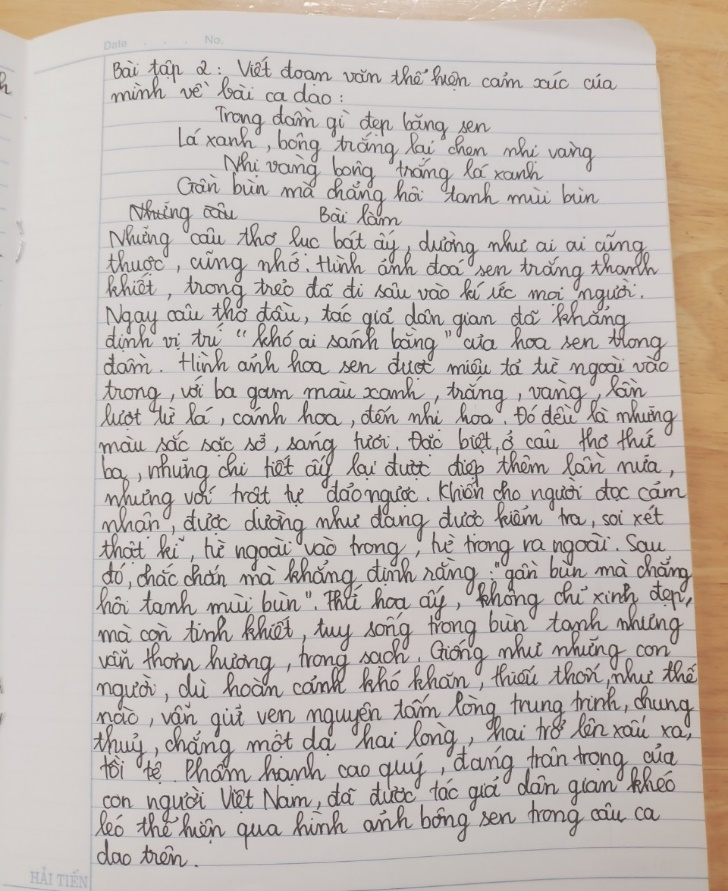 Date . . . No.
Bài tập 2: Viết đoạn văn thể hiện cảm xúc của
mình về bài ca dao:
Trong đầm gì đẹp bằng sen
Lá xanh, bông trắng lại chen nhị vàng
Nhị vàng bông trắng lá xanh
Gần bùn mà chẳng hôi tanh mùi bùn
Những câu Bài làm
Những câu thơ lục bát ấy, dường như ai ai cũng
thuộc, cũng nhớ. Hình ảnh đoá sen trắng thanh
khiết, trong trẻo đã đi sâu vào kí ức mọi người.
Ngay câu thơ đầu, tác giả dân gian đã khẳng
định vị trí "khó ai sánh bằng" của hoa sen trong
đầm. Hình ảnh hoa sen được miêu tả từ ngoài vào
trong, với ba gam màu xanh, trắng, vàng, lần
lượt từ lá, cánh hoa, đến nhị hoa. Đó đều là những
màu sắc sặc sỡ, sáng tươi. Đặc biệt, ở câu thơ thứ
ba, những chi tiết ấy lại được điệp thêm lần nữa,
nhưng với trật tự đảo ngược. Khiến cho người đọc cảm
nhận, được dường như đang được kiểm tra, soi xét
thật kĩ, từ ngoài vào trong, từ trong ra ngoài. Sau
đó, chắc chắn mà khẳng định rằng: "gần bùn mà chẳng
hôi tanh mùi bùn". Thứ hoa ấy, không chỉ xinh đẹp,
mà còn tinh khiết, tuy sống trong bùn tanh nhưng
vẫn thơm hương, trong sạch. Giống như những con
người, dù hoàn cảnh khó khăn, thiếu thốn, như thế
nào, vẫn giữ vẹn nguyên tấm lòng trung trinh, chung
thuỷ, chẳng một dạ hai lòng, hai trở lên xấu xa,
tồi tệ. Phẩm hạnh cao quý, đáng trân trọng của
con người Việt Nam, đã được tác giả dân gian khéo
léo thể hiện qua hình ảnh bông sen trong câu ca
dao trên.
HẢI TIẾN